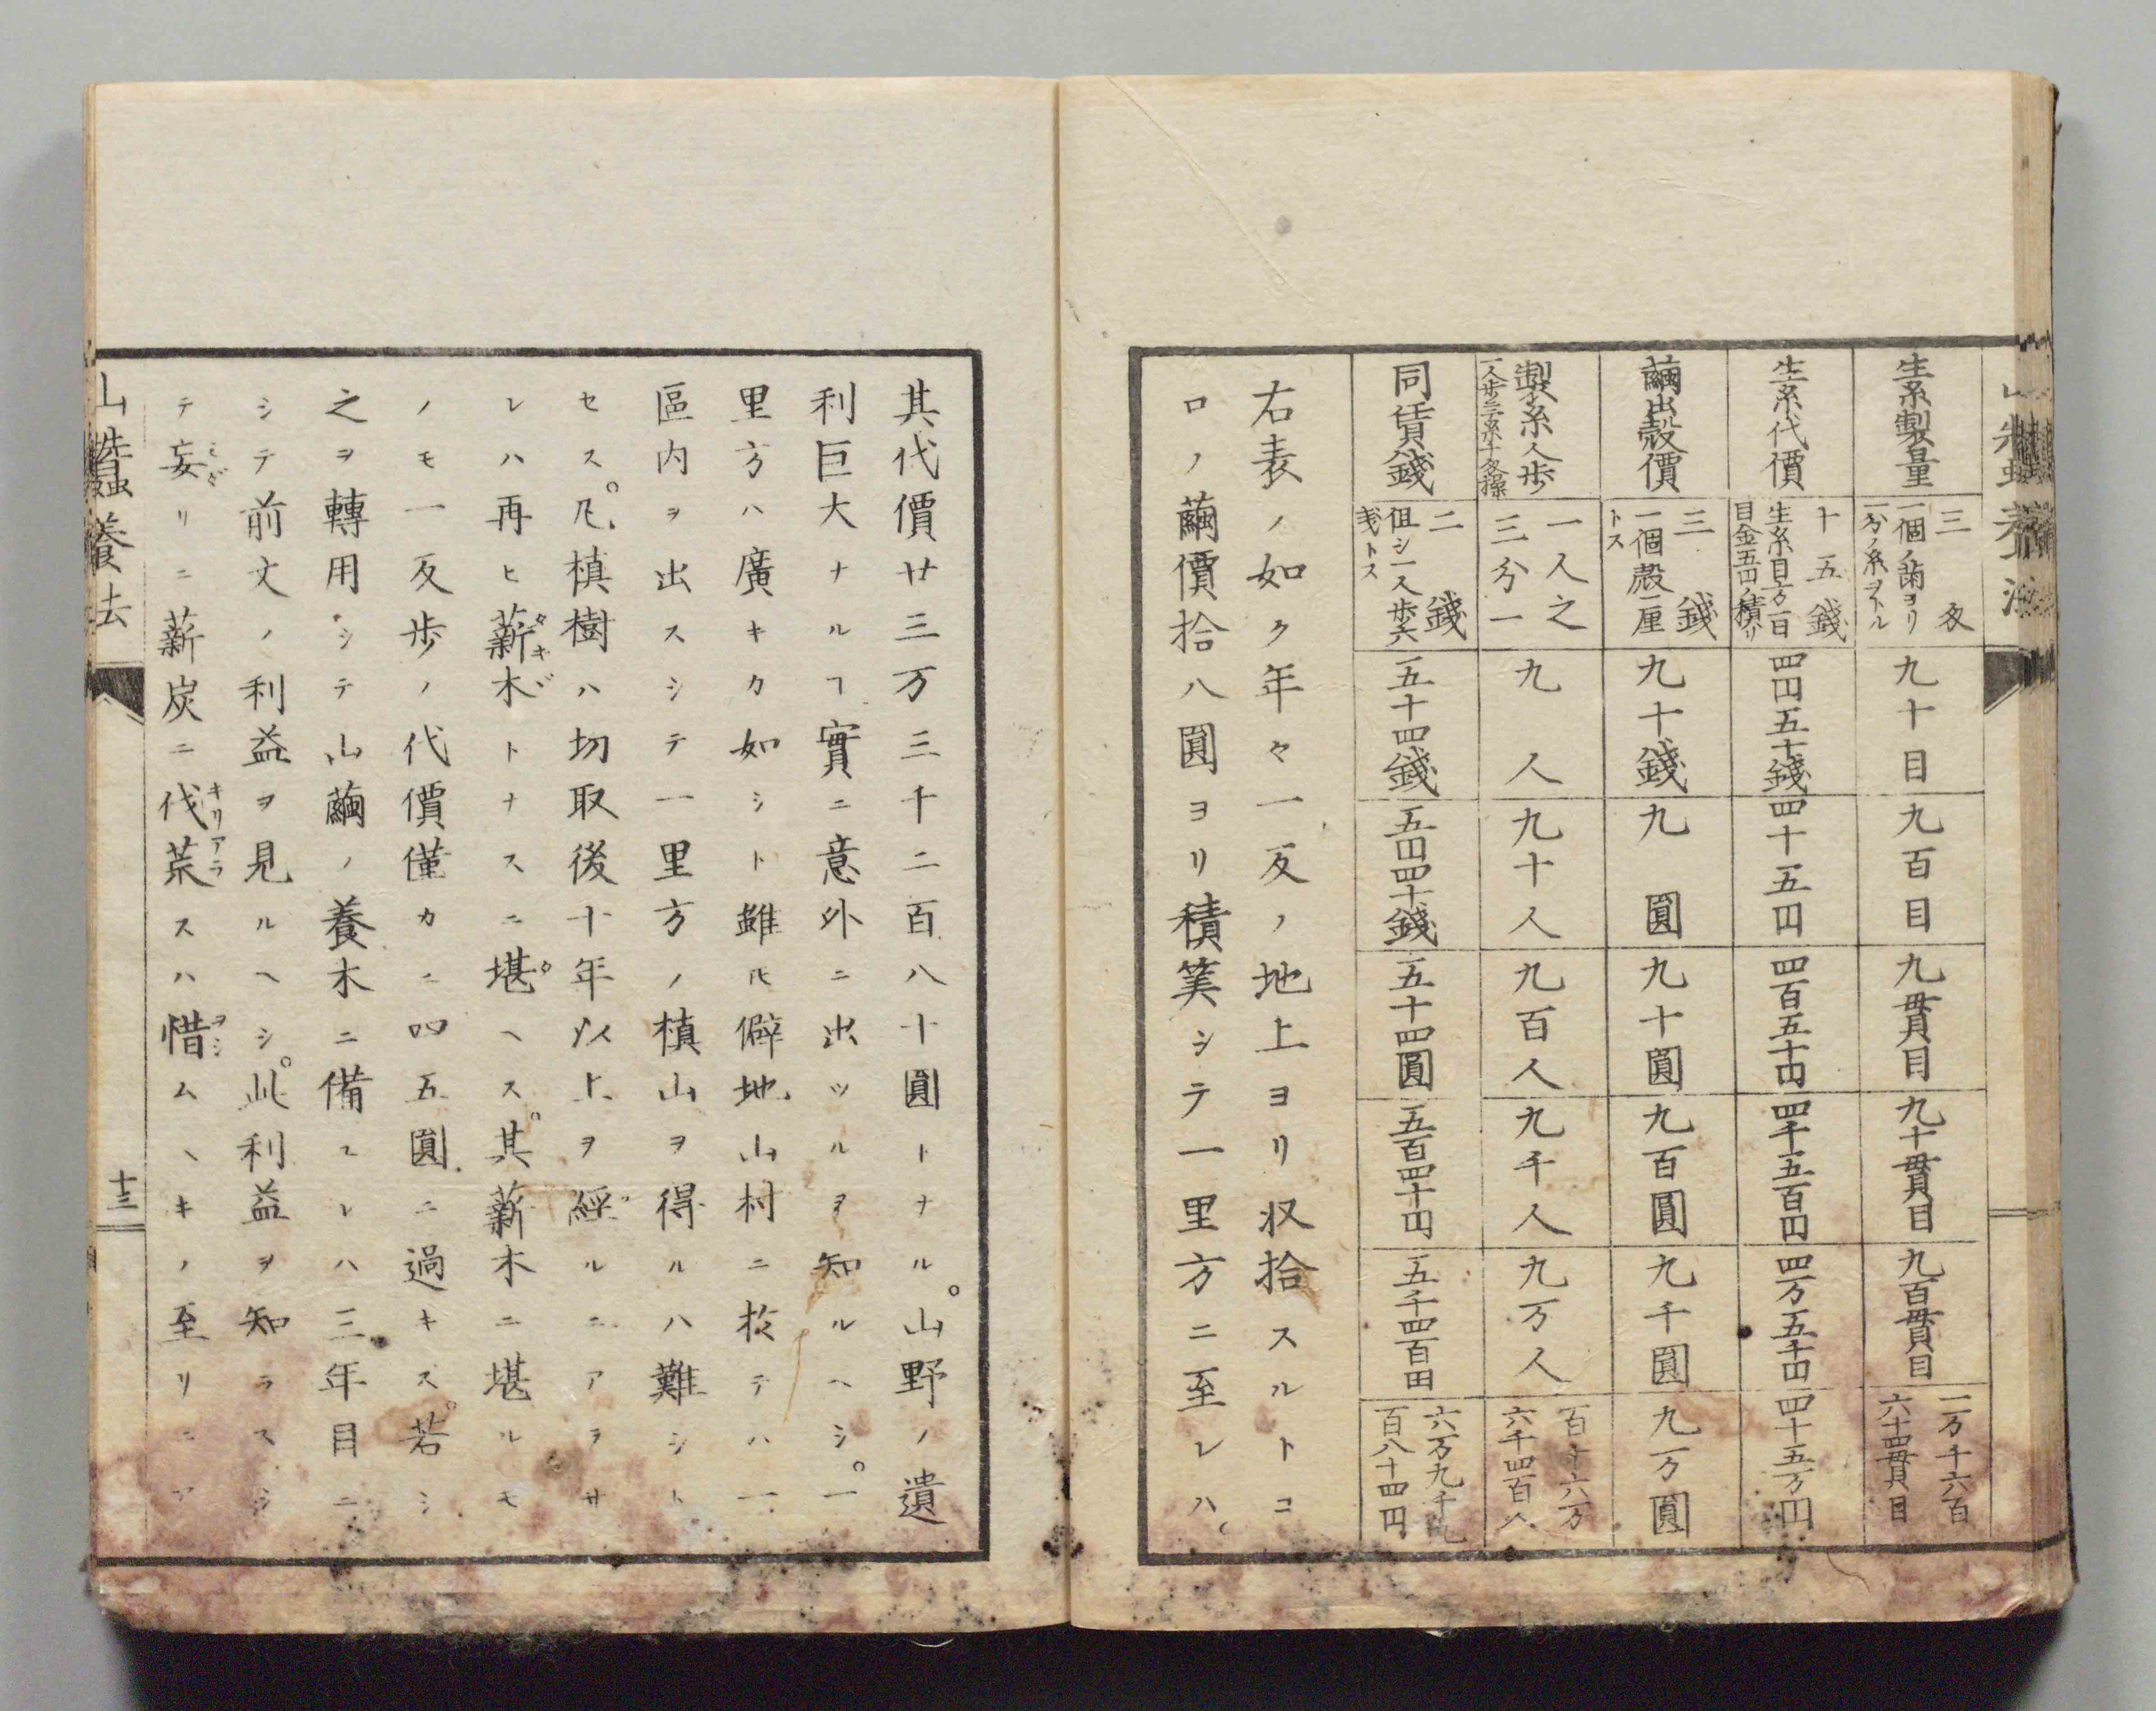 生糸製量
三匁
一個ノ繭ヨリ
一分ノ糸ヲトル
九十目
九百目
九貫目
九十貫目
九百貫目
二万千六百
六十四貫目
生糸代價
十五錢
生糸目方百
目金五円ノ積リ
四円五十錢
四十五円
四百五十円
四千五百円
四万五千円
四十五万円
繭出殻價
三錢
一個殻一厘
トス
九十錢
九圓
九十圓
九百圓
九千圓
九万圓
製糸人歩
一人之
三分一
九人
九十人
九百人
九千人
九万人
百十六万
六千四百人
同賃錢
二錢
但シ一人歩六
錢トス
五十四錢
五円四十錢
五十四圓
五百四十円
五千四百円
六万九千九
百八十四円
右表ノ如ク年々一反ノ地上ヨリ収拾スルトコ
ロノ繭價拾八圓ヨリ積筭シテ一里方ニ至レハ、
山蠶養法
其代價廿三万三千二百八十圓トナル。山野ノ遺
利巨大ナルヿ實ニ意外ニ出ツルヲ知ルヘシ。一
里方ハ廣キカ如シト雖𪜈僻地山村ニ於テハ一
區内ヲ出スシテ一里方ノ槙山ヲ得ルハ難シト
セス。凡槙樹ハ切取後十年以上ヲ經ルニアラサ
レハ再ヒ薪木トナスニ堪ヘス。其薪木ニ堪ルモ
ノモ一反歩ノ代價僅カニ四五圓ニ過キス。若シ
之ヲ轉用シテ山繭ノ養木ニ備フレハ三年目ニ
シテ前文ノ利益ヲ見ルヘシ。此利益ヲ知ラスシ
テ妄リニ薪炭ニ伐荒スハ惜ムヘキノ至リニア
山蠶養法
十三